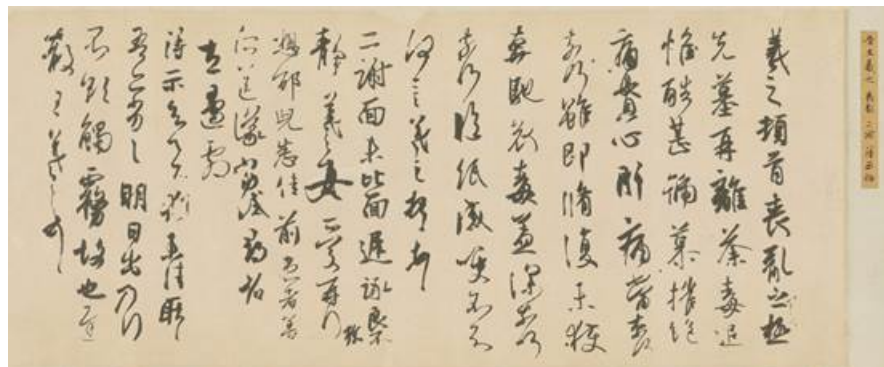 羲之頓首喪亂之極
先墓再離荼毒追
惟酷甚號慕摧絕
痛貫心肝痛當奈何
奈何雖即脩復未獲
奔馳哀毒益深奈何
奈何臨紙感哽不知
何言羲之頓首頓首
二謝面未比面遲詠良
靜羲之女愛再拜
想邰兒悉佳前患者善
所送議當試尋省
左邊劇
得示知足下猶未佳耿耿
吾亦劣劣明日出乃行
不欲觸霧故也遲
散王羲之頓首